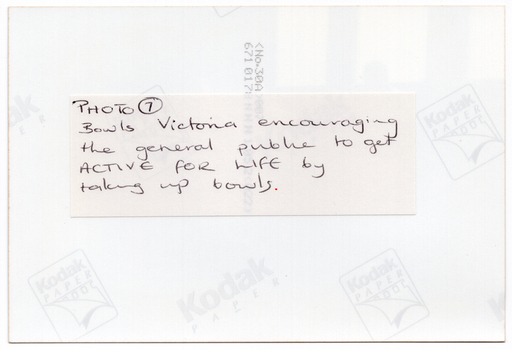 <No.30A
671 017
PHOTO 7
Bowls Victoria encouraging
the general public to get
ACTIVE FOR LIFE by
taking up bowls.
Kodak
PAPER
Kodak
PAPER
Kodak
PAPER
Kodak
PAPER
Kodak
PAPER